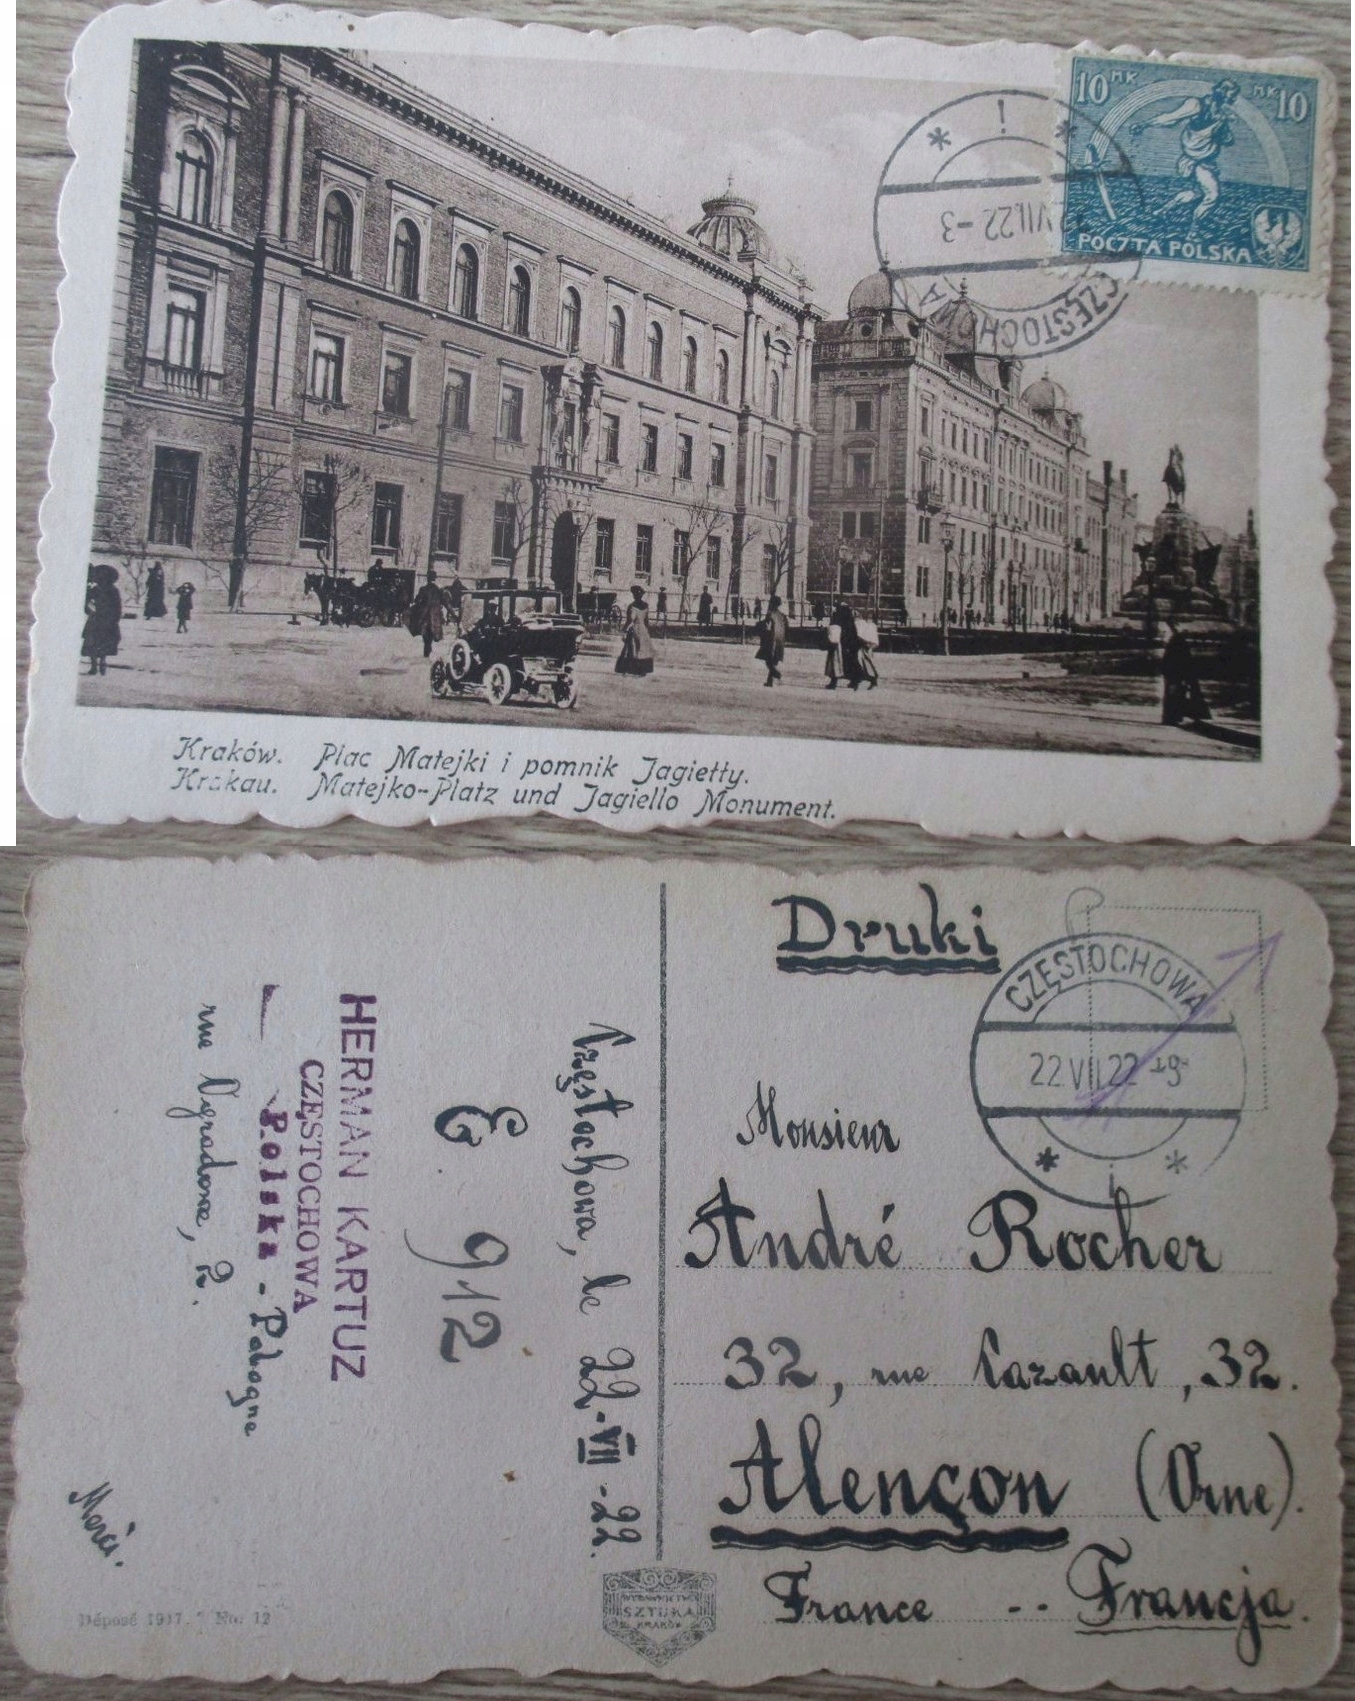 10 MK MK 10
POCZTA POLSKA
CZĘSTOCHOWA
VII.22-3
Kraków. Plac Matejki i pomnik Jagiełły.
Krakau. Matejko-Platz und Jagiello Monument.
Druki
CZĘSTOCHOWA
22 VII 22
Monsieur
André Rocher
32, rue Cazault, 32.
Alençon (Orne).
France -- Francja.
Częstochowa, le 22-VII-22.
E. 912
HERMAN KARTUZ
CZĘSTOCHOWA
Polska - Pologne
rue Ogradowa, 2.
Merci.
Déposé 1917. No. 12
WYDAWNICTWO
SZTUKA
KRAKÓW